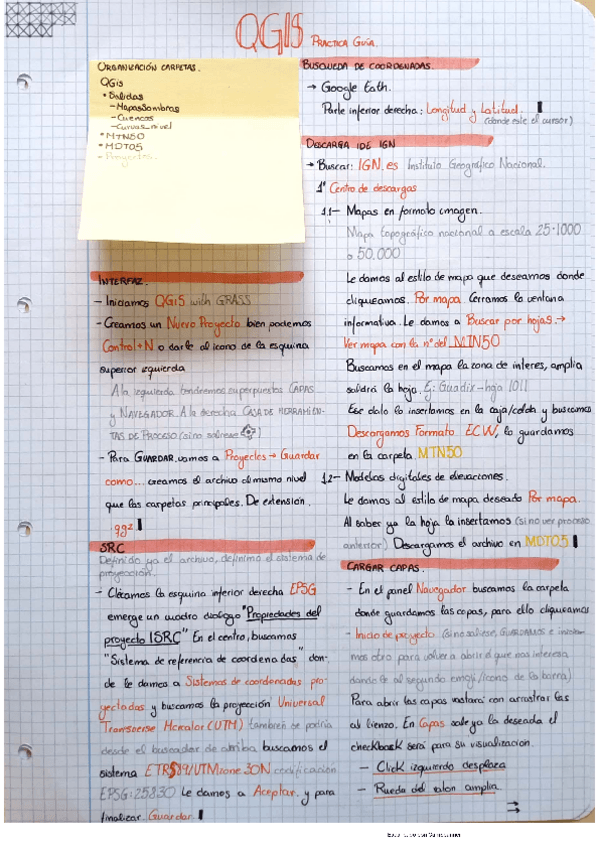 QGIS PRACTICA GUÍA.
ORGANIZACIÓN CARPETAS.
QGis
• Salidas
- MapasSombras
- Cuencas
- Curvas_nivel
• MTN50
• MDT05
- Proyectos.
INTERFAZ.
- Iniciamos QGiS with GRASS
- Creamos un Nuevo Proyecto bien podemos
Control+N o darle al icono de la esquina
superior izquierda
A la izquierda tendremos superpuestos CAPAS
y NAVEGADOR. A la derecha CAJA DE HERRAMIEN-
TAS DE PROCESO (si no sobrese )
- Para GUARDAR vamos a Proyectos → Guardar
como... creamos el archivo al mismo nivel
que las carpetas principales. De extensión
.qgz
SRC
Definido ya el archivo, definimo el sistema de
proyección.
- Clicamos la esquina inferior derecha EPSG
emerge un cuadro dialogo "Propiedades del
proyecto | SRC" En el centro, buscamos
"Sistema de referencia de coordenadas" don-
de le damos a Sistemas de coordenadas pro-
yectadas y buscamos la proyección Universal
Transverse Mercator (UTM) tambien se podría
desde el buscador de arriba buscamos el
sistema ETRS89/UTM zone 30N codificación
EPSG:25830 Le damos a Aceptar. y para
finalizar. Guardar.
BUSQUEDA DE COORDENADAS.
→ Google Eath.
Parte inferior derecha: Longitud y Latitud.
(donde este el cursor)
DESCARGA IDE IGN
→ Buscar: IGN.es Instituto Geográfico Nacional.
1° Centro de descargas
1.1- Mapas en formato imagen.
Mapa topográfico nacional a escala 25.1000
o 50.000
Le damos al estilo de mapa que deseamos donde
cliqueamos. Por mapa. Cerramos la ventana
informativa. Le damos a Buscar por hojas. →
Ver mapa con la nº del MTN50
Buscamos en el mapa la zona de interes, amplia
saldrá la hoja. Ej: Guadix - hoja 1011
Ese dato lo insertamos en la caja/celda y buscamos
Descargamos Formato ECW, lo guardamos
en la carpeta. MTN50
1.2- Modelos digitales de elevaciones.
Le damos al estilo de mapa deseado Por mapa.
Al saber ya la hoja la insertamos (si no ver proceso
anterior) Descargamos el archivo en MDT05
CARGAR CAPAS.
- En el panel Navegador buscamos la carpeta
donde guardamos las capas, para ello cliqueamos
- Inicio de proyecto. (si no saliese, GUARDAMOS e
mos otro para volver a abrir el que nos interesa
dandole al segundo emoji/icono de la barra)
Para abrir las capas bastará con arrastrar las
al lienzo. En Capas sale ya la deseada el
checkback será para su visualización.
- Click izquierdo desplaza
- Rueda del raton amplia.